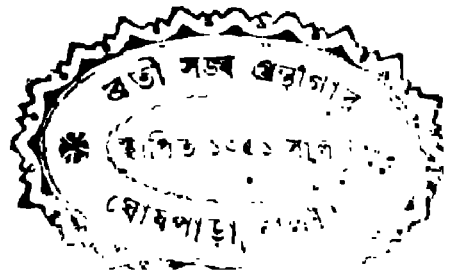 ব্রতী সঙ্ঘ গ্রন্থাগার
স্থাপিত ১৩৫১ সাল
ঘোষপাড়া,